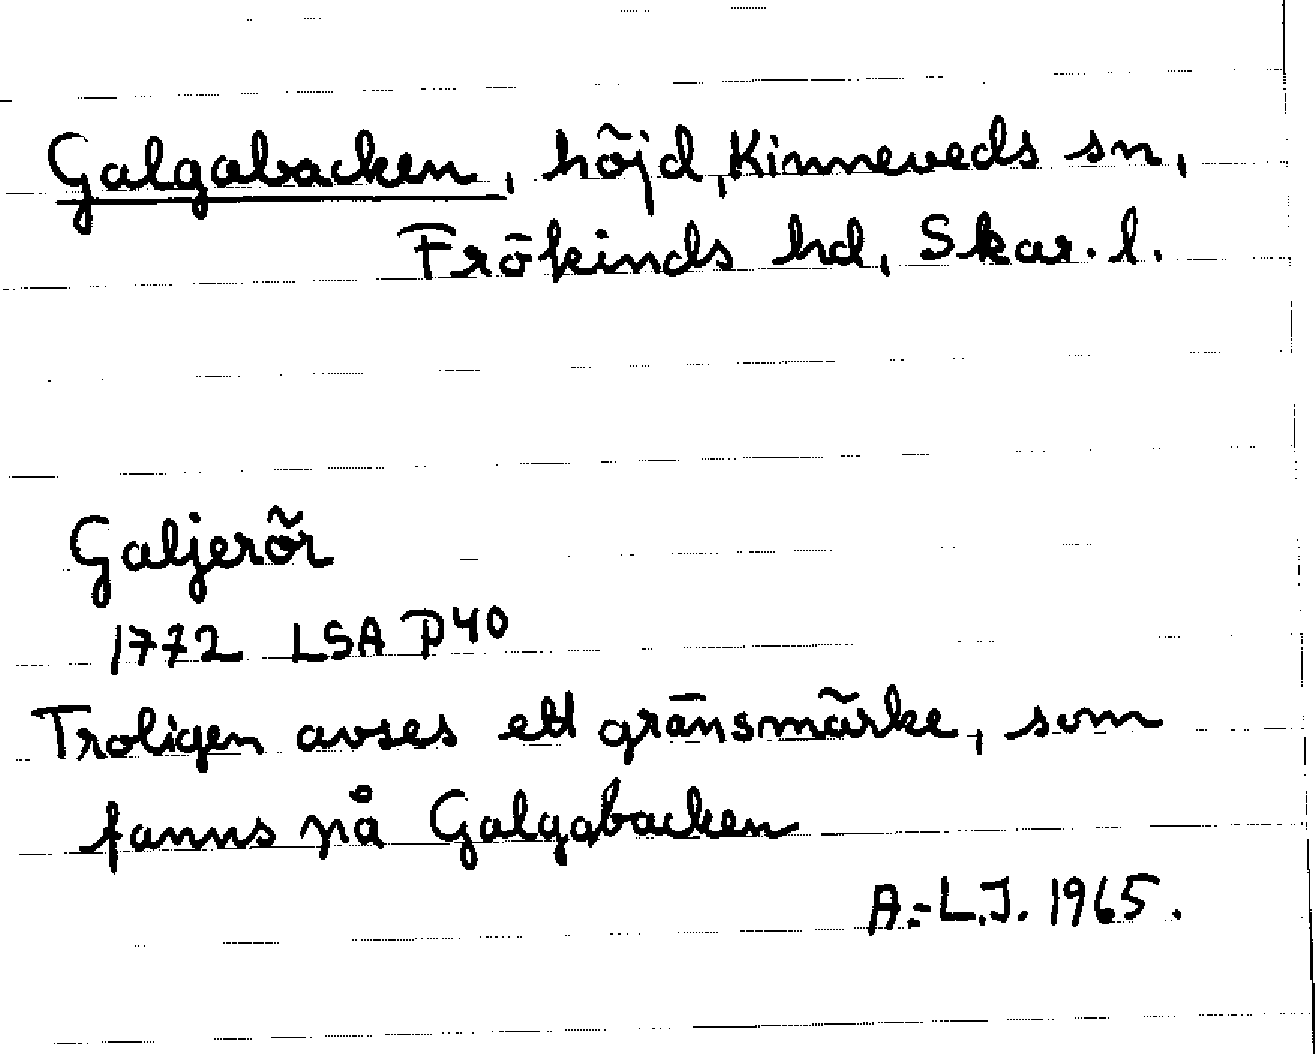 Galgabacken, höjd, Kinneveds sn,
Frökinds hd, Skar. l.
Galjerör
1772 LSA P40
Troligen avses ett gränsmärke, som
fanns på Galgabacken
A.-L.J. 1965.